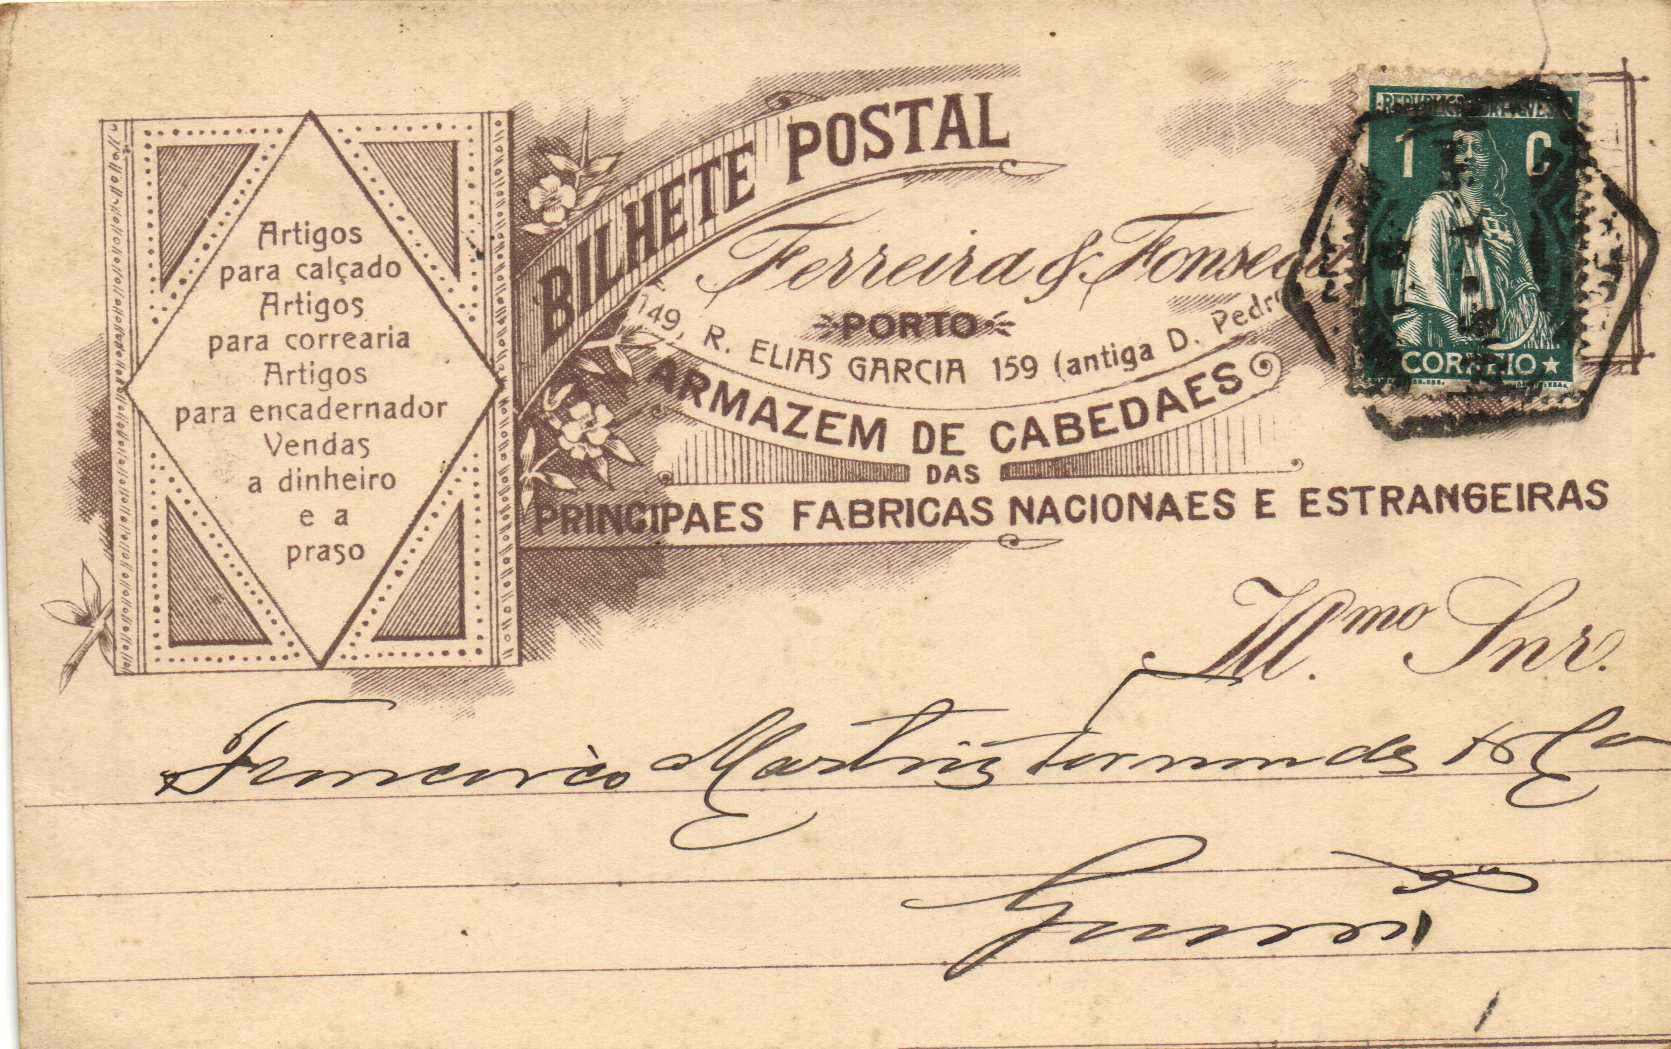 BILHETE POSTAL
Ferreira & Fonseca
PORTO
149, R. ELIAS GARCIA 159 (antiga D. Pedro
ARMAZEM DE CABEDAES
DAS
PRINCIPAES FABRICAS NACIONAES E ESTRANGEIRAS
Artigos
para calçado
Artigos
para correaria
Artigos
para encadernador
Vendas
a dinheiro
e a
praso
REPUBLICA PORTUGUESA
1 C
CORREIO
Ill.mo Snr.
Francisco Martins Fernandes & Ca